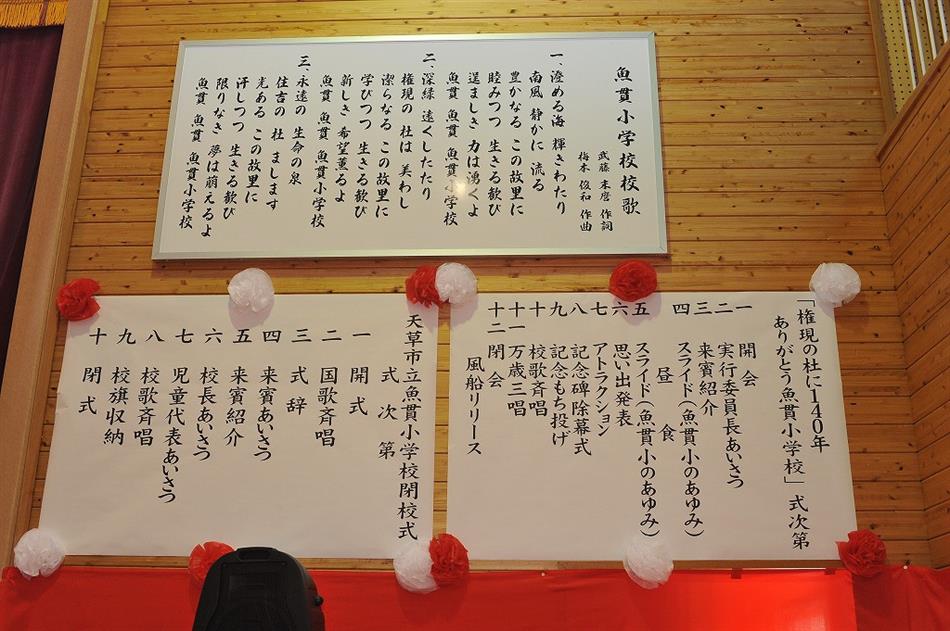 魚貫小学校校歌
武藤 末麿 作詞
梅木 俊和 作曲
一、澄める海 輝きわたり
南風 静かに 流る
豊かなる この故里に
睦みつつ 生きる歓び
逞ましき 力は湧くよ
魚貫 魚貫 魚貫小学校
二、深緑 遠くしたたり
権現の 杜は 美わし
潔らなる この故里に
学びつつ 生きる歓び
新しき 希望薫るよ
魚貫 魚貫 魚貫小学校
三、永遠の 生命の泉
住吉の 杜 まします
光ある この故里に
汗しつつ 生きる歓び
限りなき 夢は萌えるよ
魚貫 魚貫 魚貫小学校
「権現の杜に140年
ありがとう魚貫小学校」式次第
一 開会
二 実行委員長あいさつ
三 来賓紹介
四 スライド(魚貫小のあゆみ)
昼食
五 スライド(魚貫小のあゆみ)
六 思い出発表
七 アトラクション
八 記念碑除幕式
九 記念もち投げ
十 校歌斉唱
十一 万歳三唱
十二 閉会
風船リリース
天草市立魚貫小学校閉校式
式次第
一 開式
二 国歌斉唱
三 式辞
四 来賓あいさつ
五 来賓紹介
六 校長あいさつ
七 児童代表あいさつ
八 校歌斉唱
九 校旗収納
十 閉式